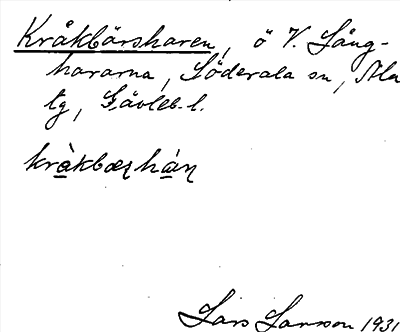 Kråkbärsharen, ö V. Lång-
hararna, Söderala sn, Ala
tg, Gävleb. l.
kràkbæṛháṇ
Lars Larsson 1931